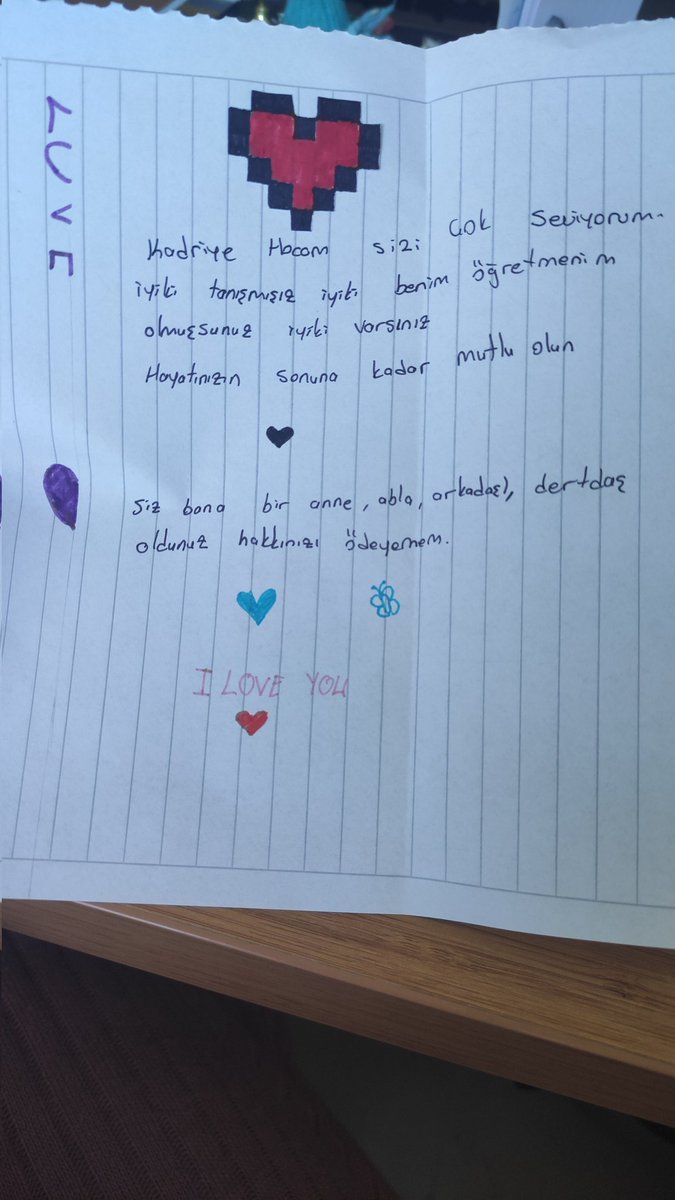 LOVE
Kadriye Hocam sizi çok seviyorum.
iyiki tanışmışız iyiki benim öğretmenim
olmuşsunuz iyiki varsınız
Hayatınızın sonuna kadar mutlu olun
Siz bana bir anne, abla, arkadaş, dertdaş
oldunuz hakkınızı ödeyemem.
I LOVE YOU